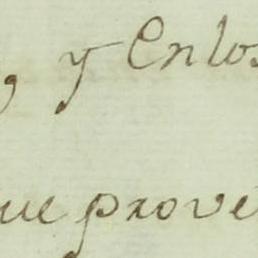 , y En los
que prove